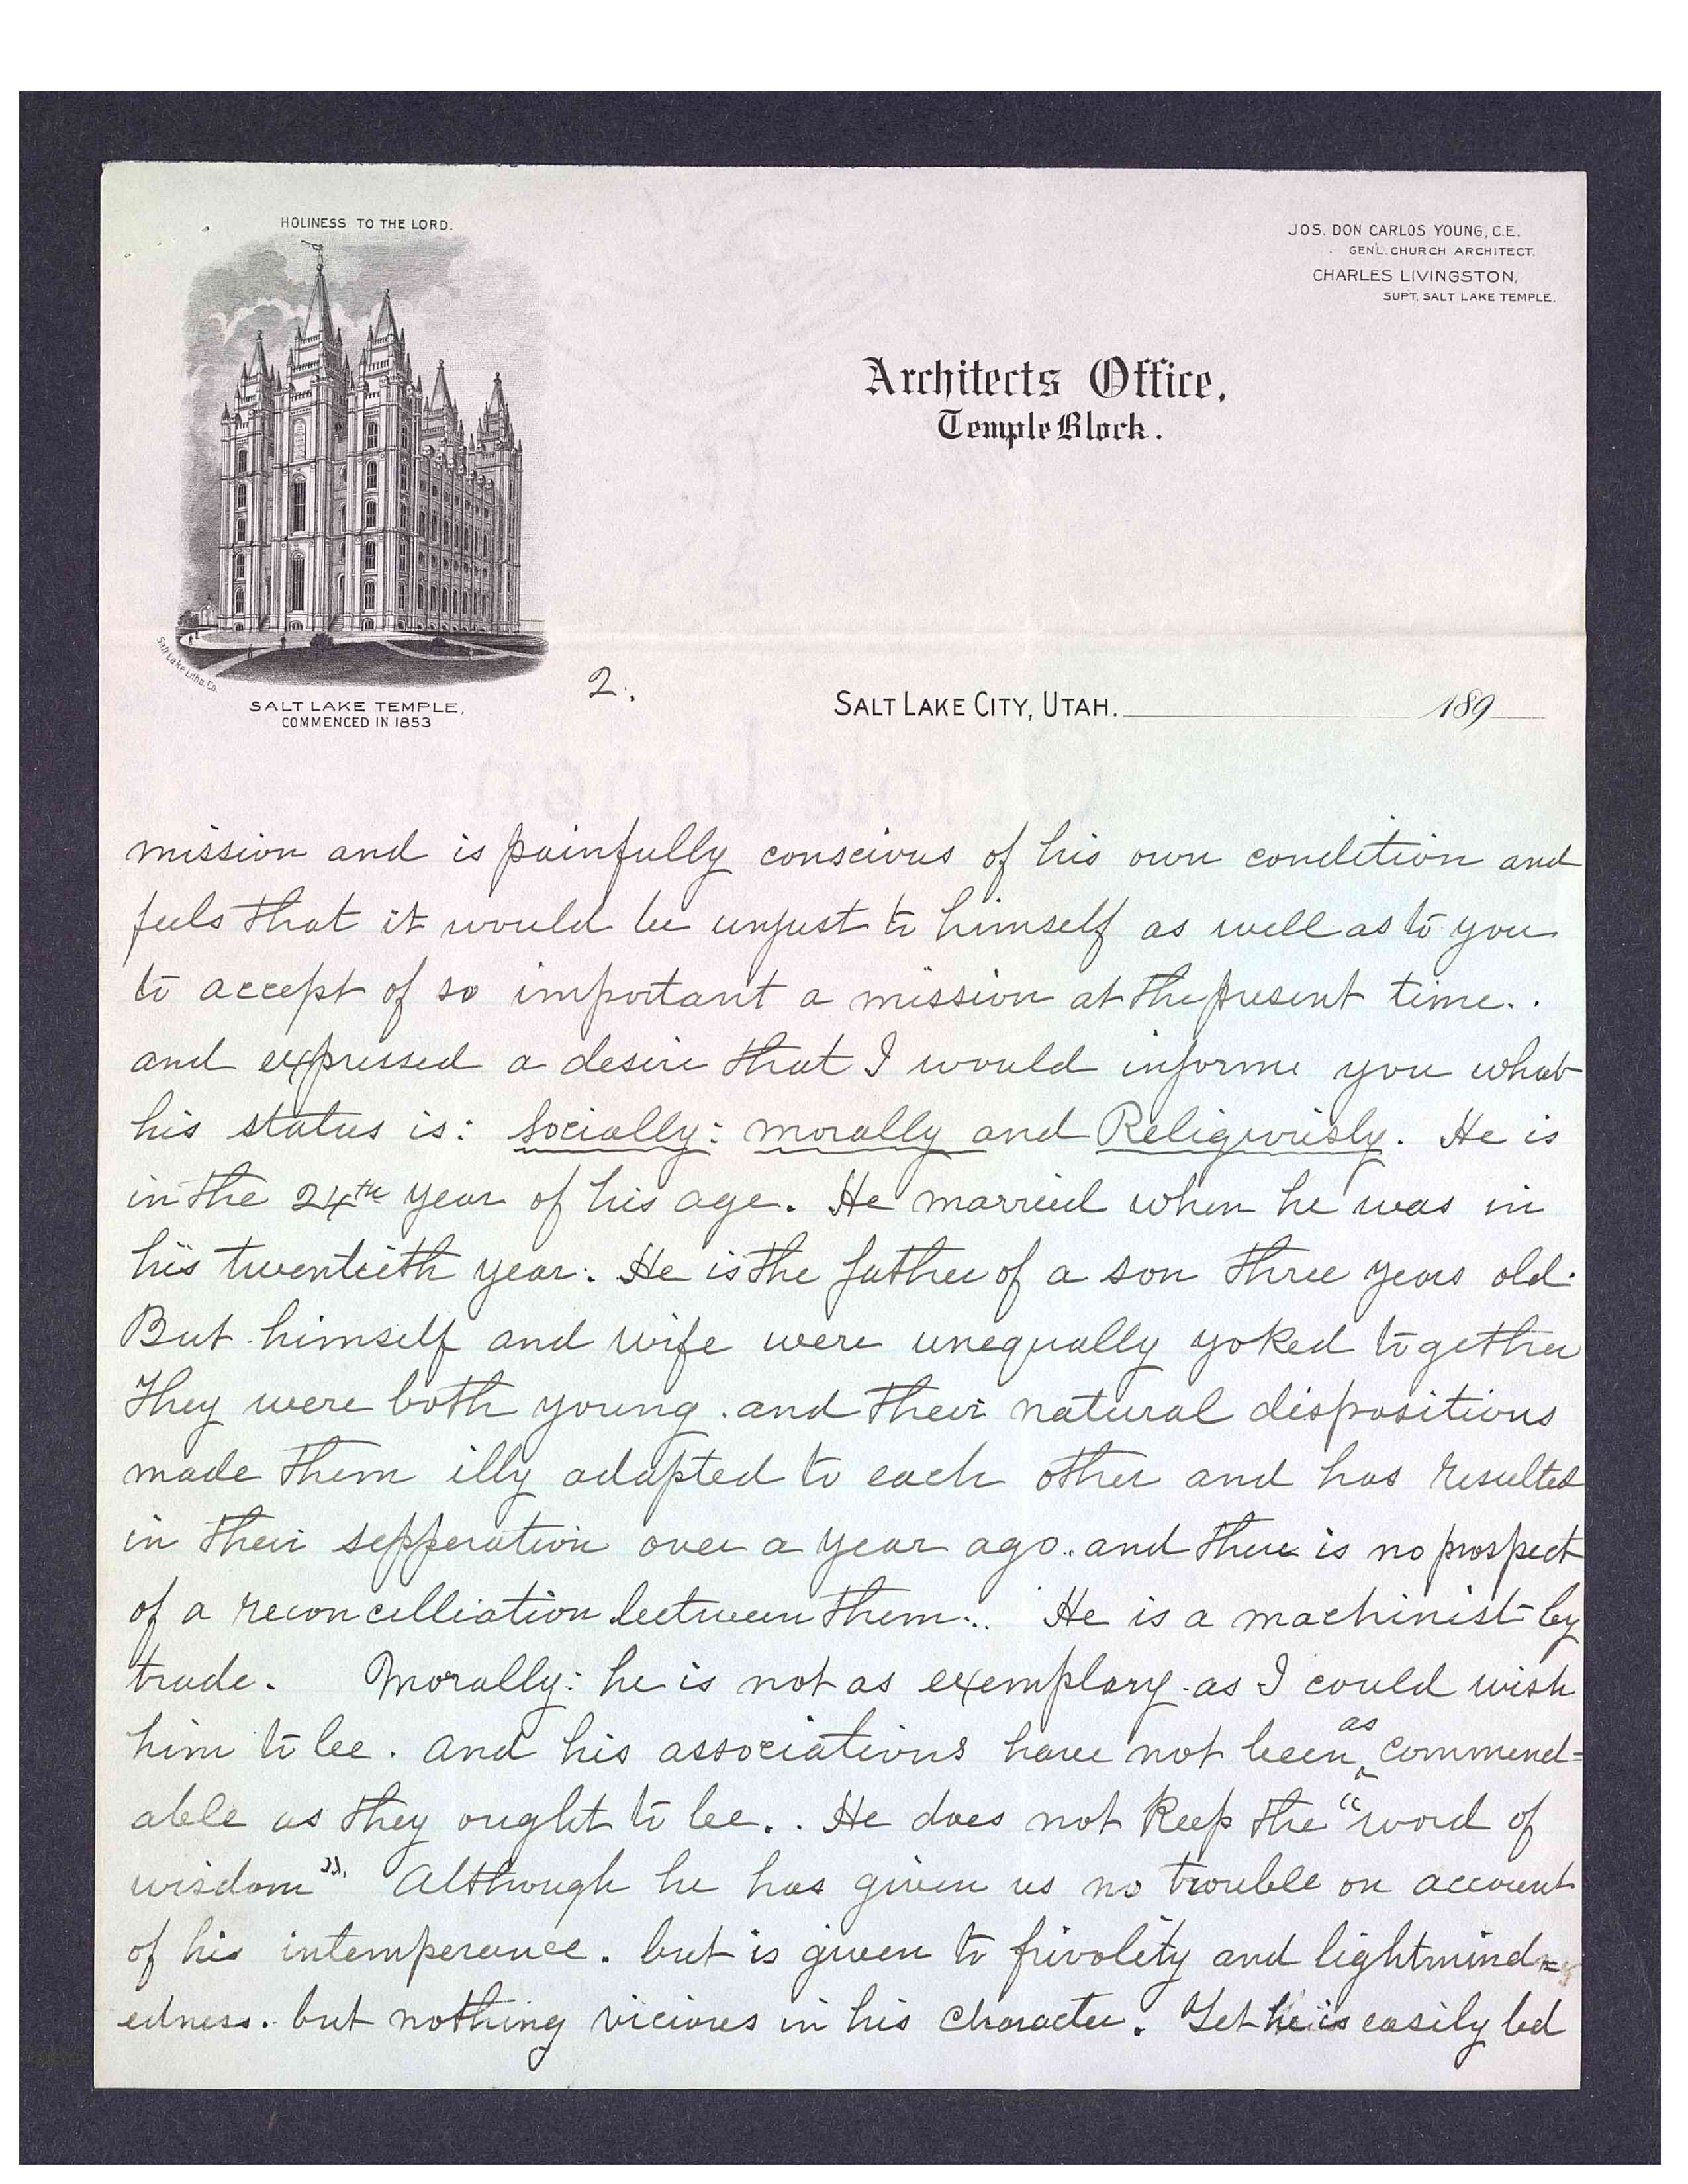 HOLINESS TO THE LORD.
JOS. DON CARLOS YOUNG, C.E.
GEN'L. CHURCH ARCHITECT.
CHARLES LIVINGSTON,
SUPT. SALT LAKE TEMPLE.
Architects Office,
Temple Block.
Salt Lake Litho. Co.
SALT LAKE TEMPLE,
COMMENCED IN 1853
2.
SALT LAKE CITY, UTAH. 189
mission and is painfully conscious of his own condition and
feels that it would be unjust to himself as well as to you
to accept of so important a mission at the present time..
and expressed a desire that I would informe you what
his status is: Socially: morally and Religiously. He is
in the 24th year of his age. He married when he was in
his twentieth year. He is the father of a son three years old.
But himself and wife were unequally yoked together
They were both young. and their natural dispositions
made them illy adapted to each other and has resulted
in their sepperation over a year ago. and there is no prospect
of a reconcilliation between them.. He is a machinist by
trade. Morally: he is not as exemplary as I could wish
him to be. and his associations have not been as commend=
able as they ought to be.. He does not keep the "word of
wisdom". Although he has given us no trouble on account
of his intemperance. but is given to frivolity and lightmind=
edness. but nothing vicious in his character. Yet he is easily led